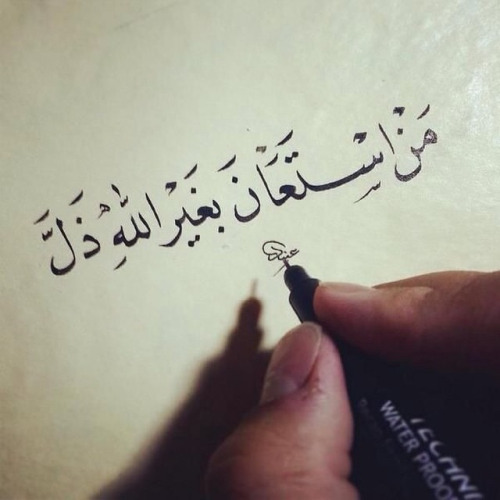 مَنْ اسْتَعَانَ بِغَيْرِ اللّٰهِ ذَلَّ
TECHNI
WATER PROO